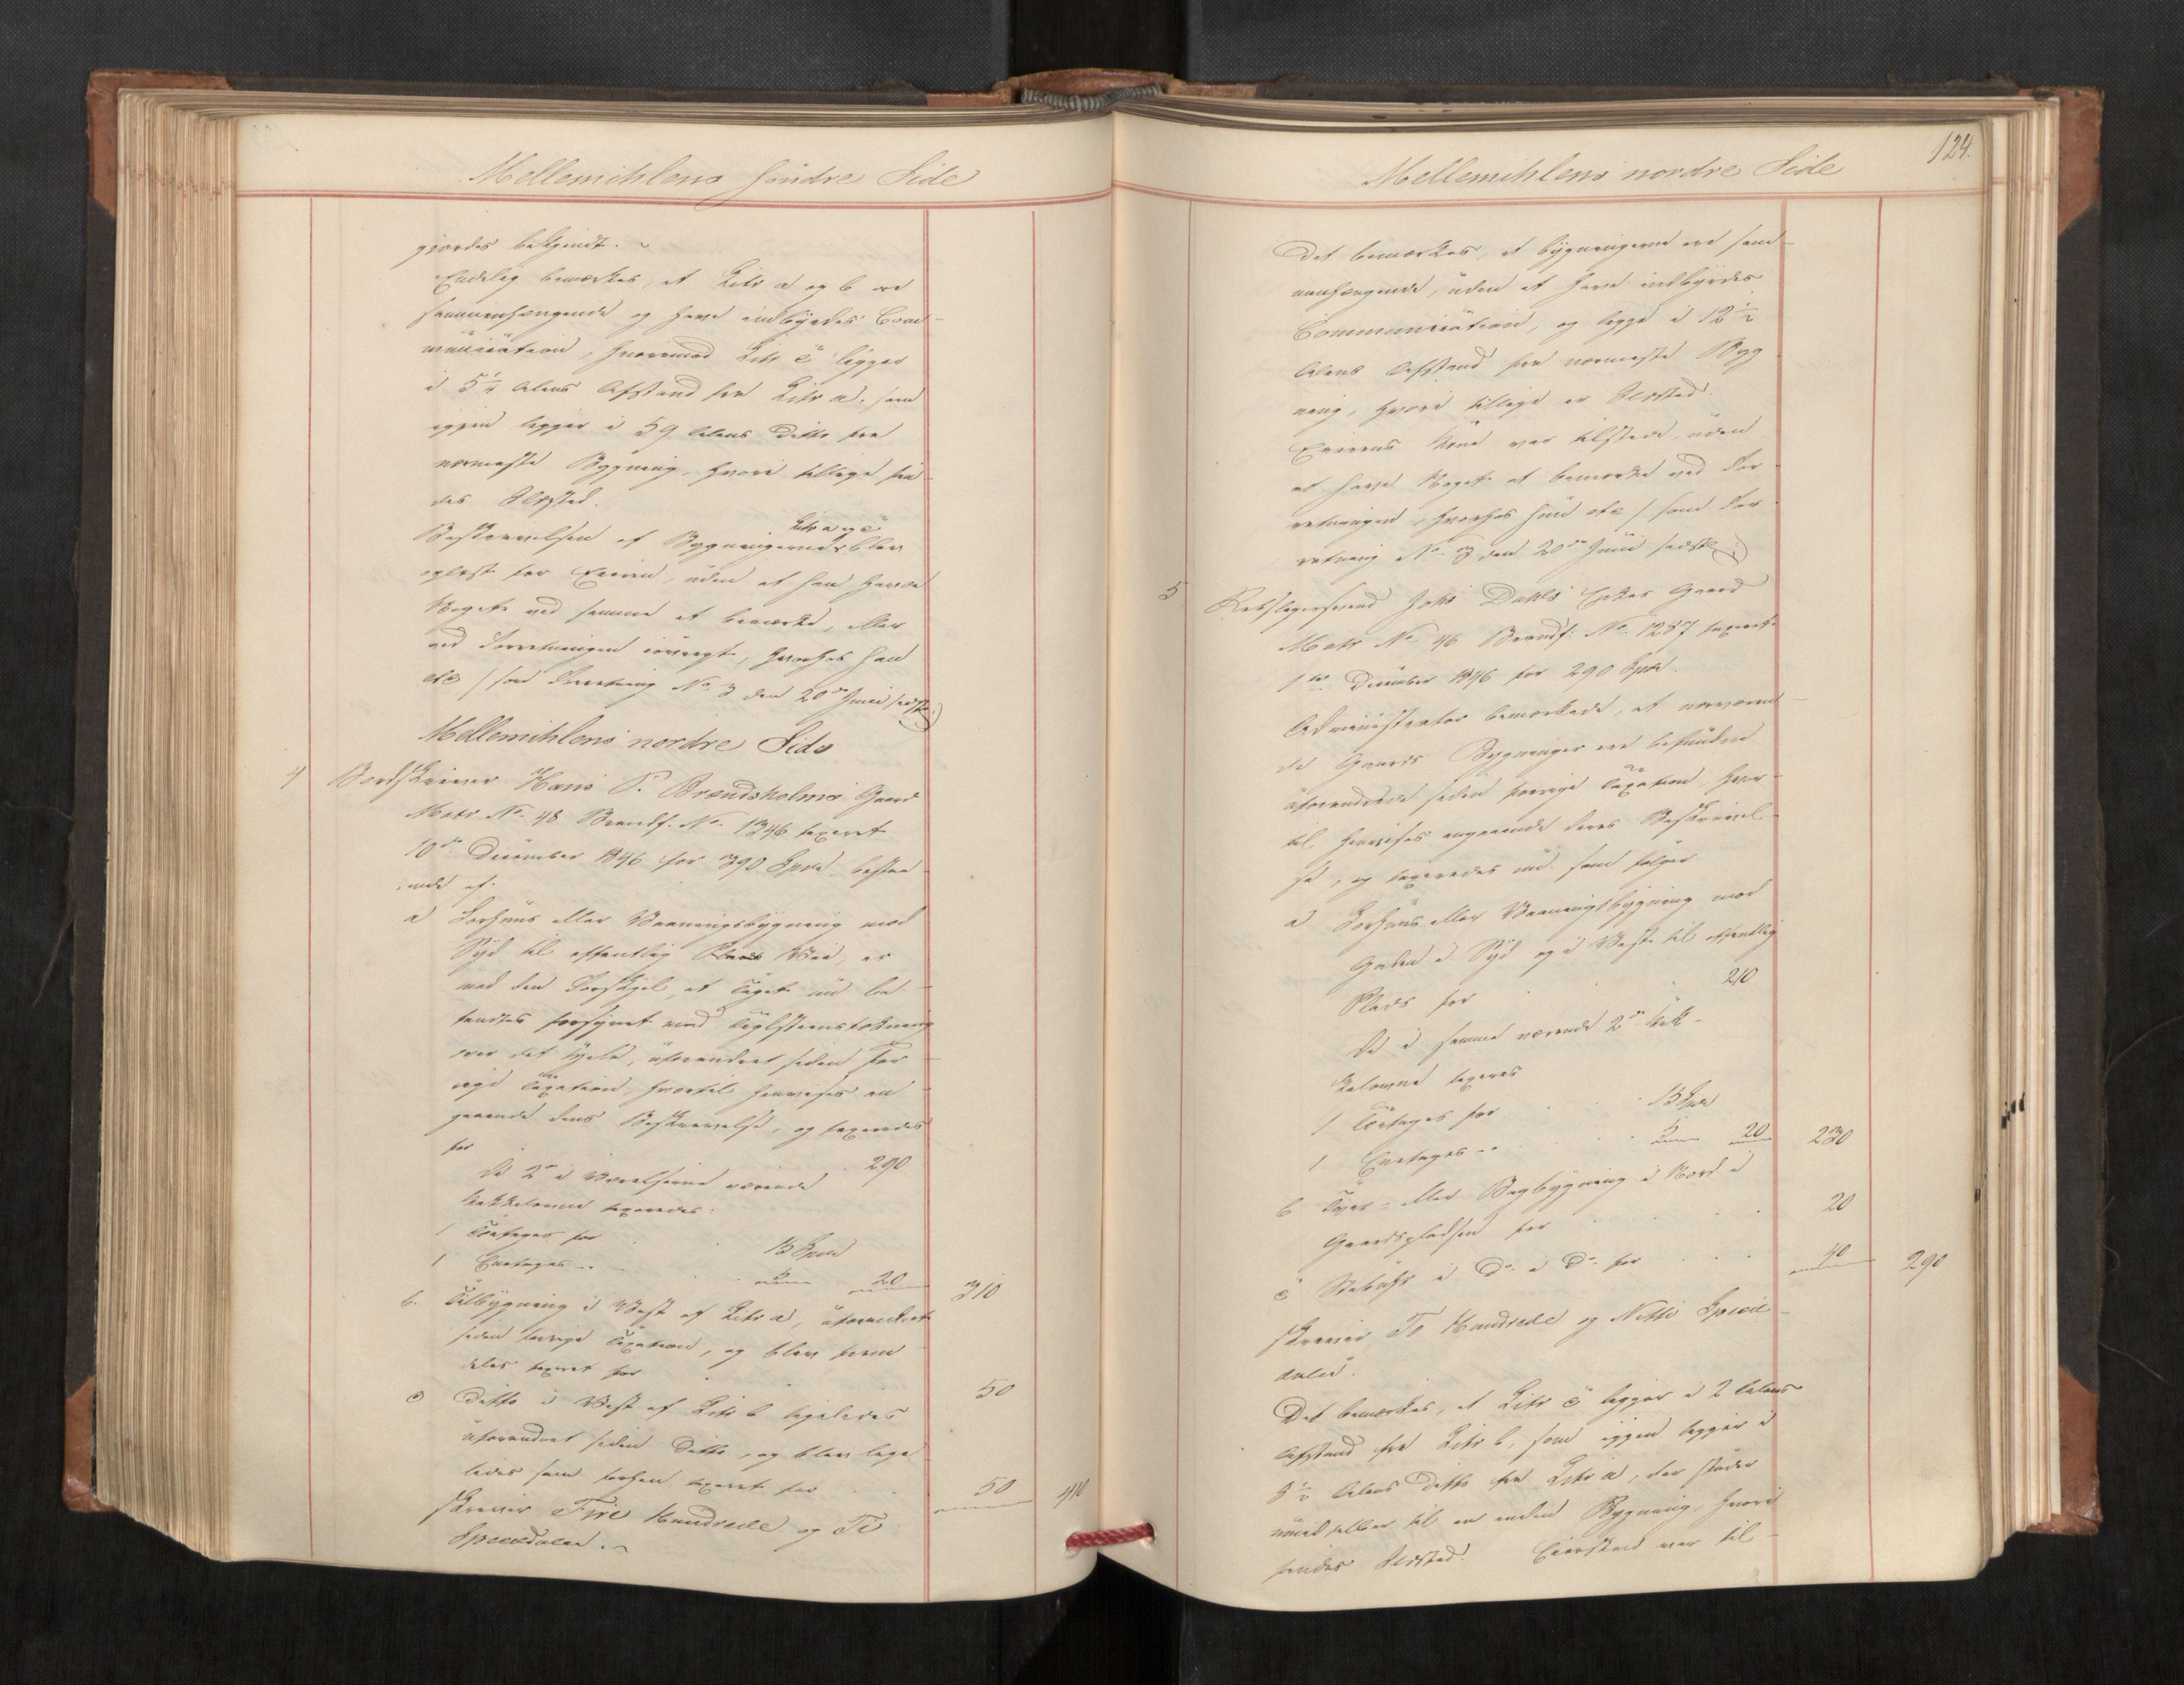 Mellemihlens søndre Side
gjordes bekjendt.
Endelig bemærkes, at Litr a og b ere
sammenhængende og have indbyrdes Com-
munication, hvorimod Litr c ligger
i 5 1/4 Alens Afstand fra Litr a, som
igjen ligger i 59 Alens Ditto fra
nærmeste Bygning, hvori tillige fin-
des Ildsted.
Litr a og c
Beskrivelsen af Bygningerne blev
oplæst for Eieren, uden at han havde
Noget ved samme at bemærke, eller
ved Forretningen iøvrigt, hvorhos han
etc (som Forretning No 3 den 20de Juni sidstl.)
Mellemihlens nordre Side
4 Bordskriver Hans P. Brændsholms Gaard
Matr No 48 Brandf. No 1346 taxeret
10de December 1846 for 390 Spd bestaa-
ende af.
a Forhuus eller Vaaningsbygning mod
Syd til offentlig Vei, er
med den Forskjel, at Taget nu be-
fandtes forsynet med Taglsteenstækning
over det Hele, uforandret siden for-
rige Taxation, hvortil henvises an-
gaaende dens Beskrivelse, og taxeredes
for 290
De 2de i Værelserne værende
Kakkelovne taxeredes:
1 Toetages for 15 Spd
1 Enetages " 5 20 310
b. Tilbygning i Vest af Litr a, uforandret
siden forrige Taxation, og blev frem-
deles taxeret for 50
c Ditto i Vest af Litr b ligeledes
uforandret siden Ditto, og blev lige-
ledes som forhen taxeret for 50 410
skriver Fire Hundrede og Ti
Speciedaler.
124.
Mellemihlens nordre Side
Det bemærkes, at Bygningerne ere sam-
menhængende, uden at have indbyrdes
Communication, og ligge i 12 1/2
Alens Afstand fra nærmeste Byg-
ning, hvori tillige er Ildsted.
Eierens Kone var tilstede, uden
at have Noget at bemærke ved For-
retningen, hvorhos hun etc (som For-
retning No 3 den 20de Juni sidstl.)
5 Rebslagersvend Johs Dahls Enkes Gaard
Matr No 46 Brandf: No 1287 taxeret
1ste December 1846 for 290 Spd.
Administrator bemærkede, at nærværen-
de Gaards Bygninger ere befundne
uforandrede siden forrige Taxation, hvor-
til henvises angaaende deres Beskrivel-
se, og taxeredes nu som følger
a Forhuus eller Vaaningsbygning mod
Gaden i Syd og i Vest til offentlig
Plads for 210
De i samme værende 2de Kak-
kelovne taxeres
1 Toetages for 15 Spd
1 Enetages " 5 20 230
b Tver- eller Bagbygning i Nord i
Gaardspladsen for 20
c Stabuhr i Do i Do for 40 290
skriver To Hundrede og Nitti Specie-
daler.
Det bemærkes, at Litr c ligger i 2 Alens
Afstand fra Litr b, som igjen ligger i
3 1/2 Alens Ditto fra Litr a, der støder
umiddelbar til en anden Bygning, hvori
findes Ildsted. var til-